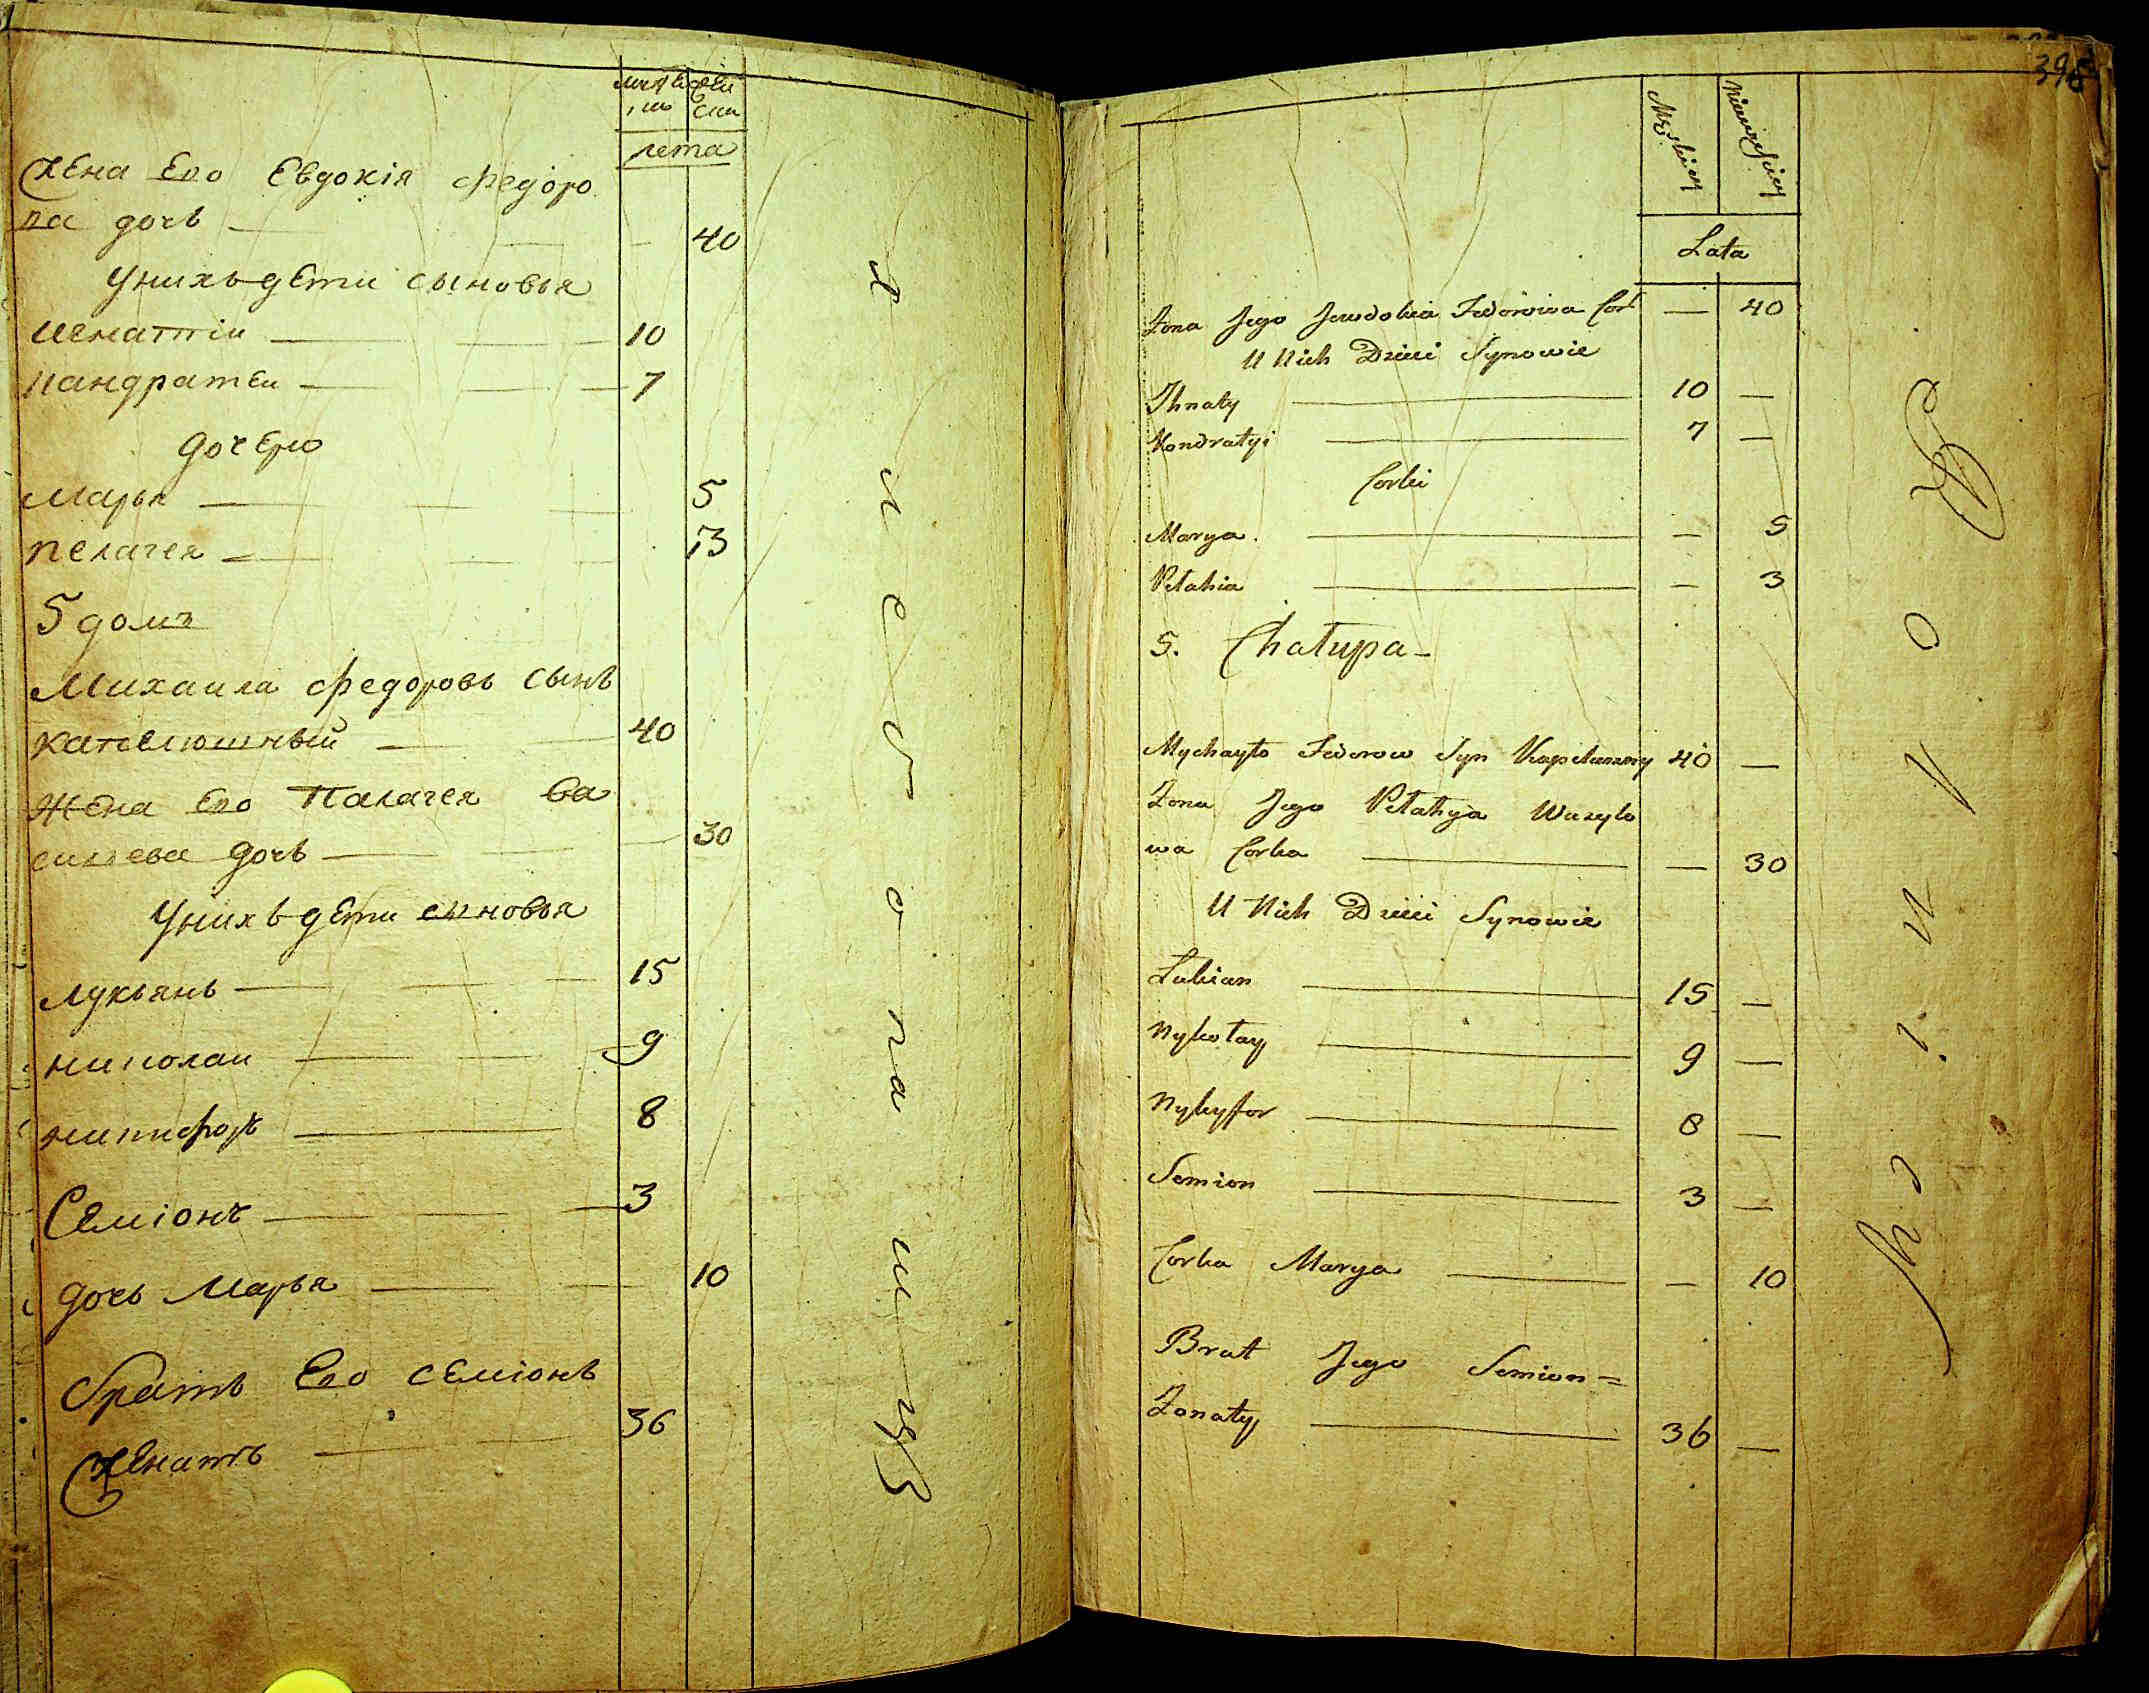 лета
Жена Его Евдокія Федоро
ва дочь 40
У нихъ дети сыновья
Игнатіи 10
Кандратеи 7
дочерю
Марья 5
Пелагея 13
5 домъ
Михаила Федоровъ сынъ
40
Жена Его Палагея Ва
силева дочь 30
У нихъ дети сыновья
Лукьянъ 15
Николаи 9
Никифоръ 8
Семіонъ 3
дочь Марья 10
братъ Его Семіонъ
Женатъ 36
398
Lata
Żona Jego Jewdokia Fedorowa Cor 40
U Nich Dzieci Synowie
Ihnaty 10
Kondratyi 7
Corki
Marya 5
Pelahia 3
5. Chałupa
Mychayło Fedorow Syn 40
Żona Jego Pelahya Wasylo
wa Corka 30
U Nich Dzieci Synowie
Łukian 15
Nykołay 9
Nykyffor 8
Semion 3
Corka Marya 10
Brat Jego Semion =
Żonaty 36